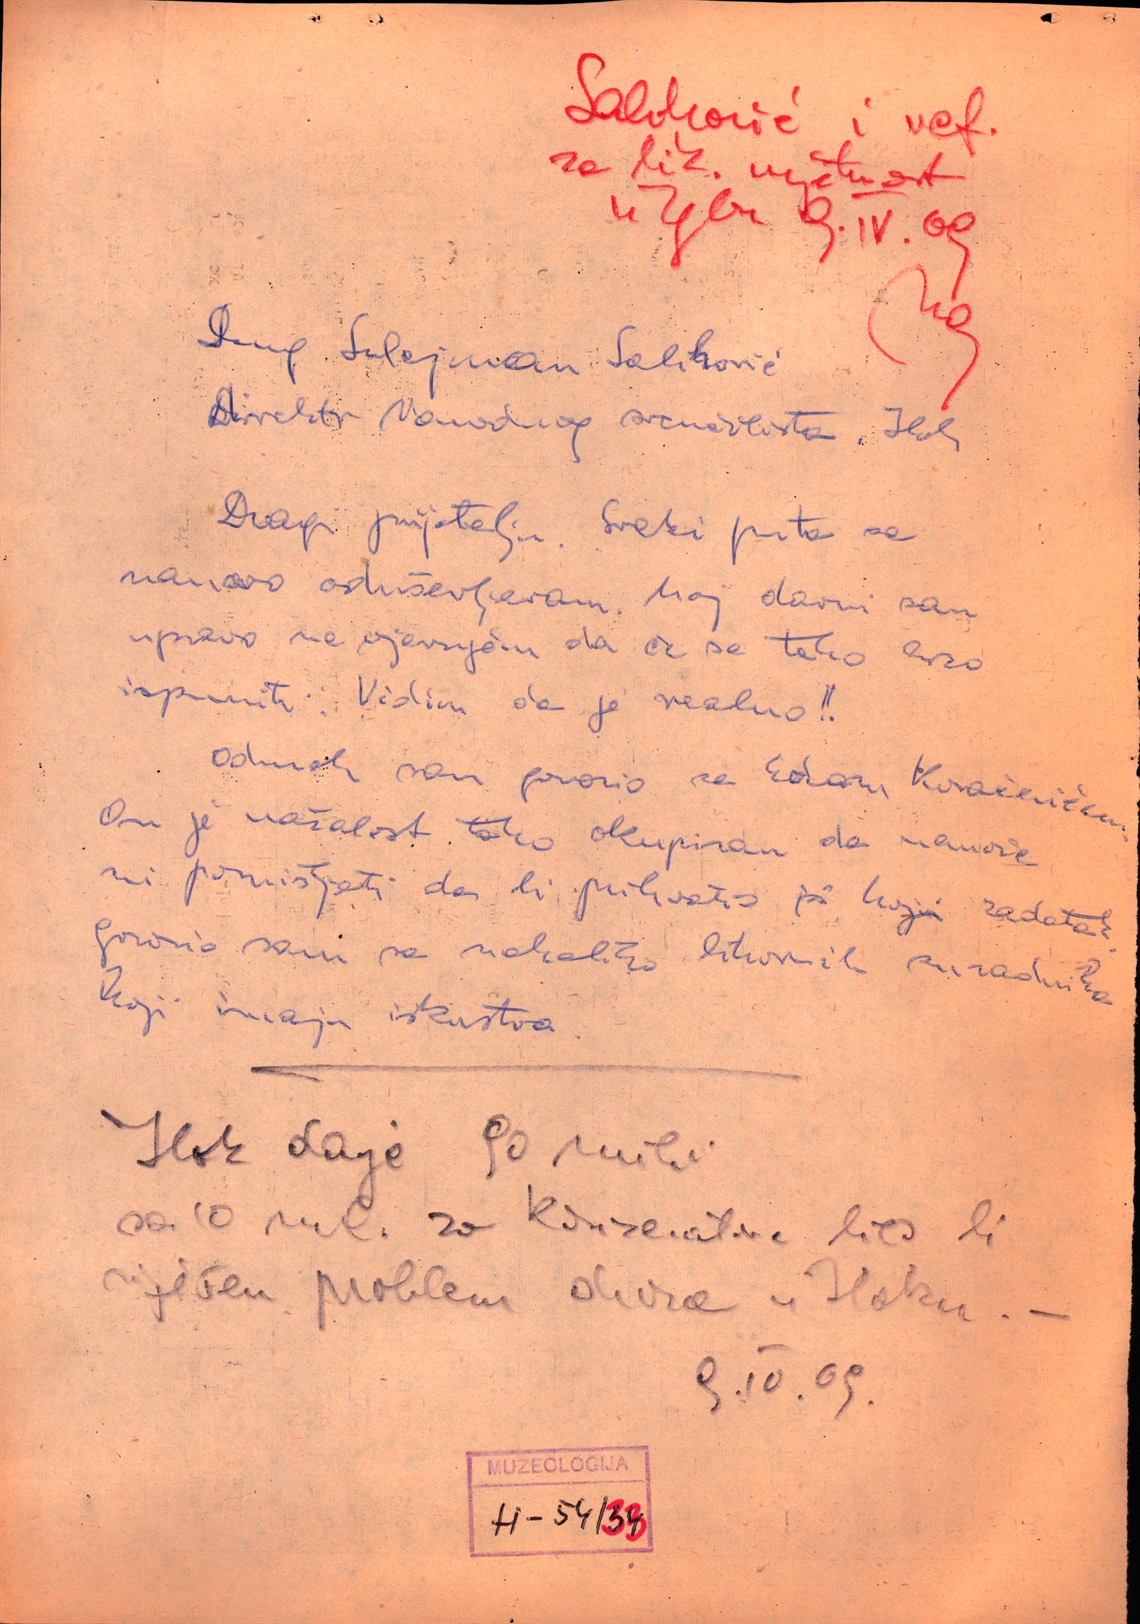 Salihović i ref.
za lik. umjetnost
u Zgbu 9.IV.69
Drug Sulejman Salihović
Direktor Narodnog sveučilišta, Ilok
Dragi prijatelju. Svaki puta se
nanovo oduševljavam. Moj davni san
upravo ne vjerujem da će se tako brzo
ispuniti. Vidim da je realno!!
Odmah sam govorio sa Edom Kovačevićem,
On je nažalost tako okupiran da nemože
ni pomišljati da bi prihvatio još koji zadatak,
govorio sam sa nekoliko likovnih suradnika
koji imaju iskustva.
Ilok daje 90 mili
sa 10 mil. za Konzervatore bio bi
riješen problem dvora u Iloku. —
9.IV.69.
MUZEOLOGIJA
H-54/34